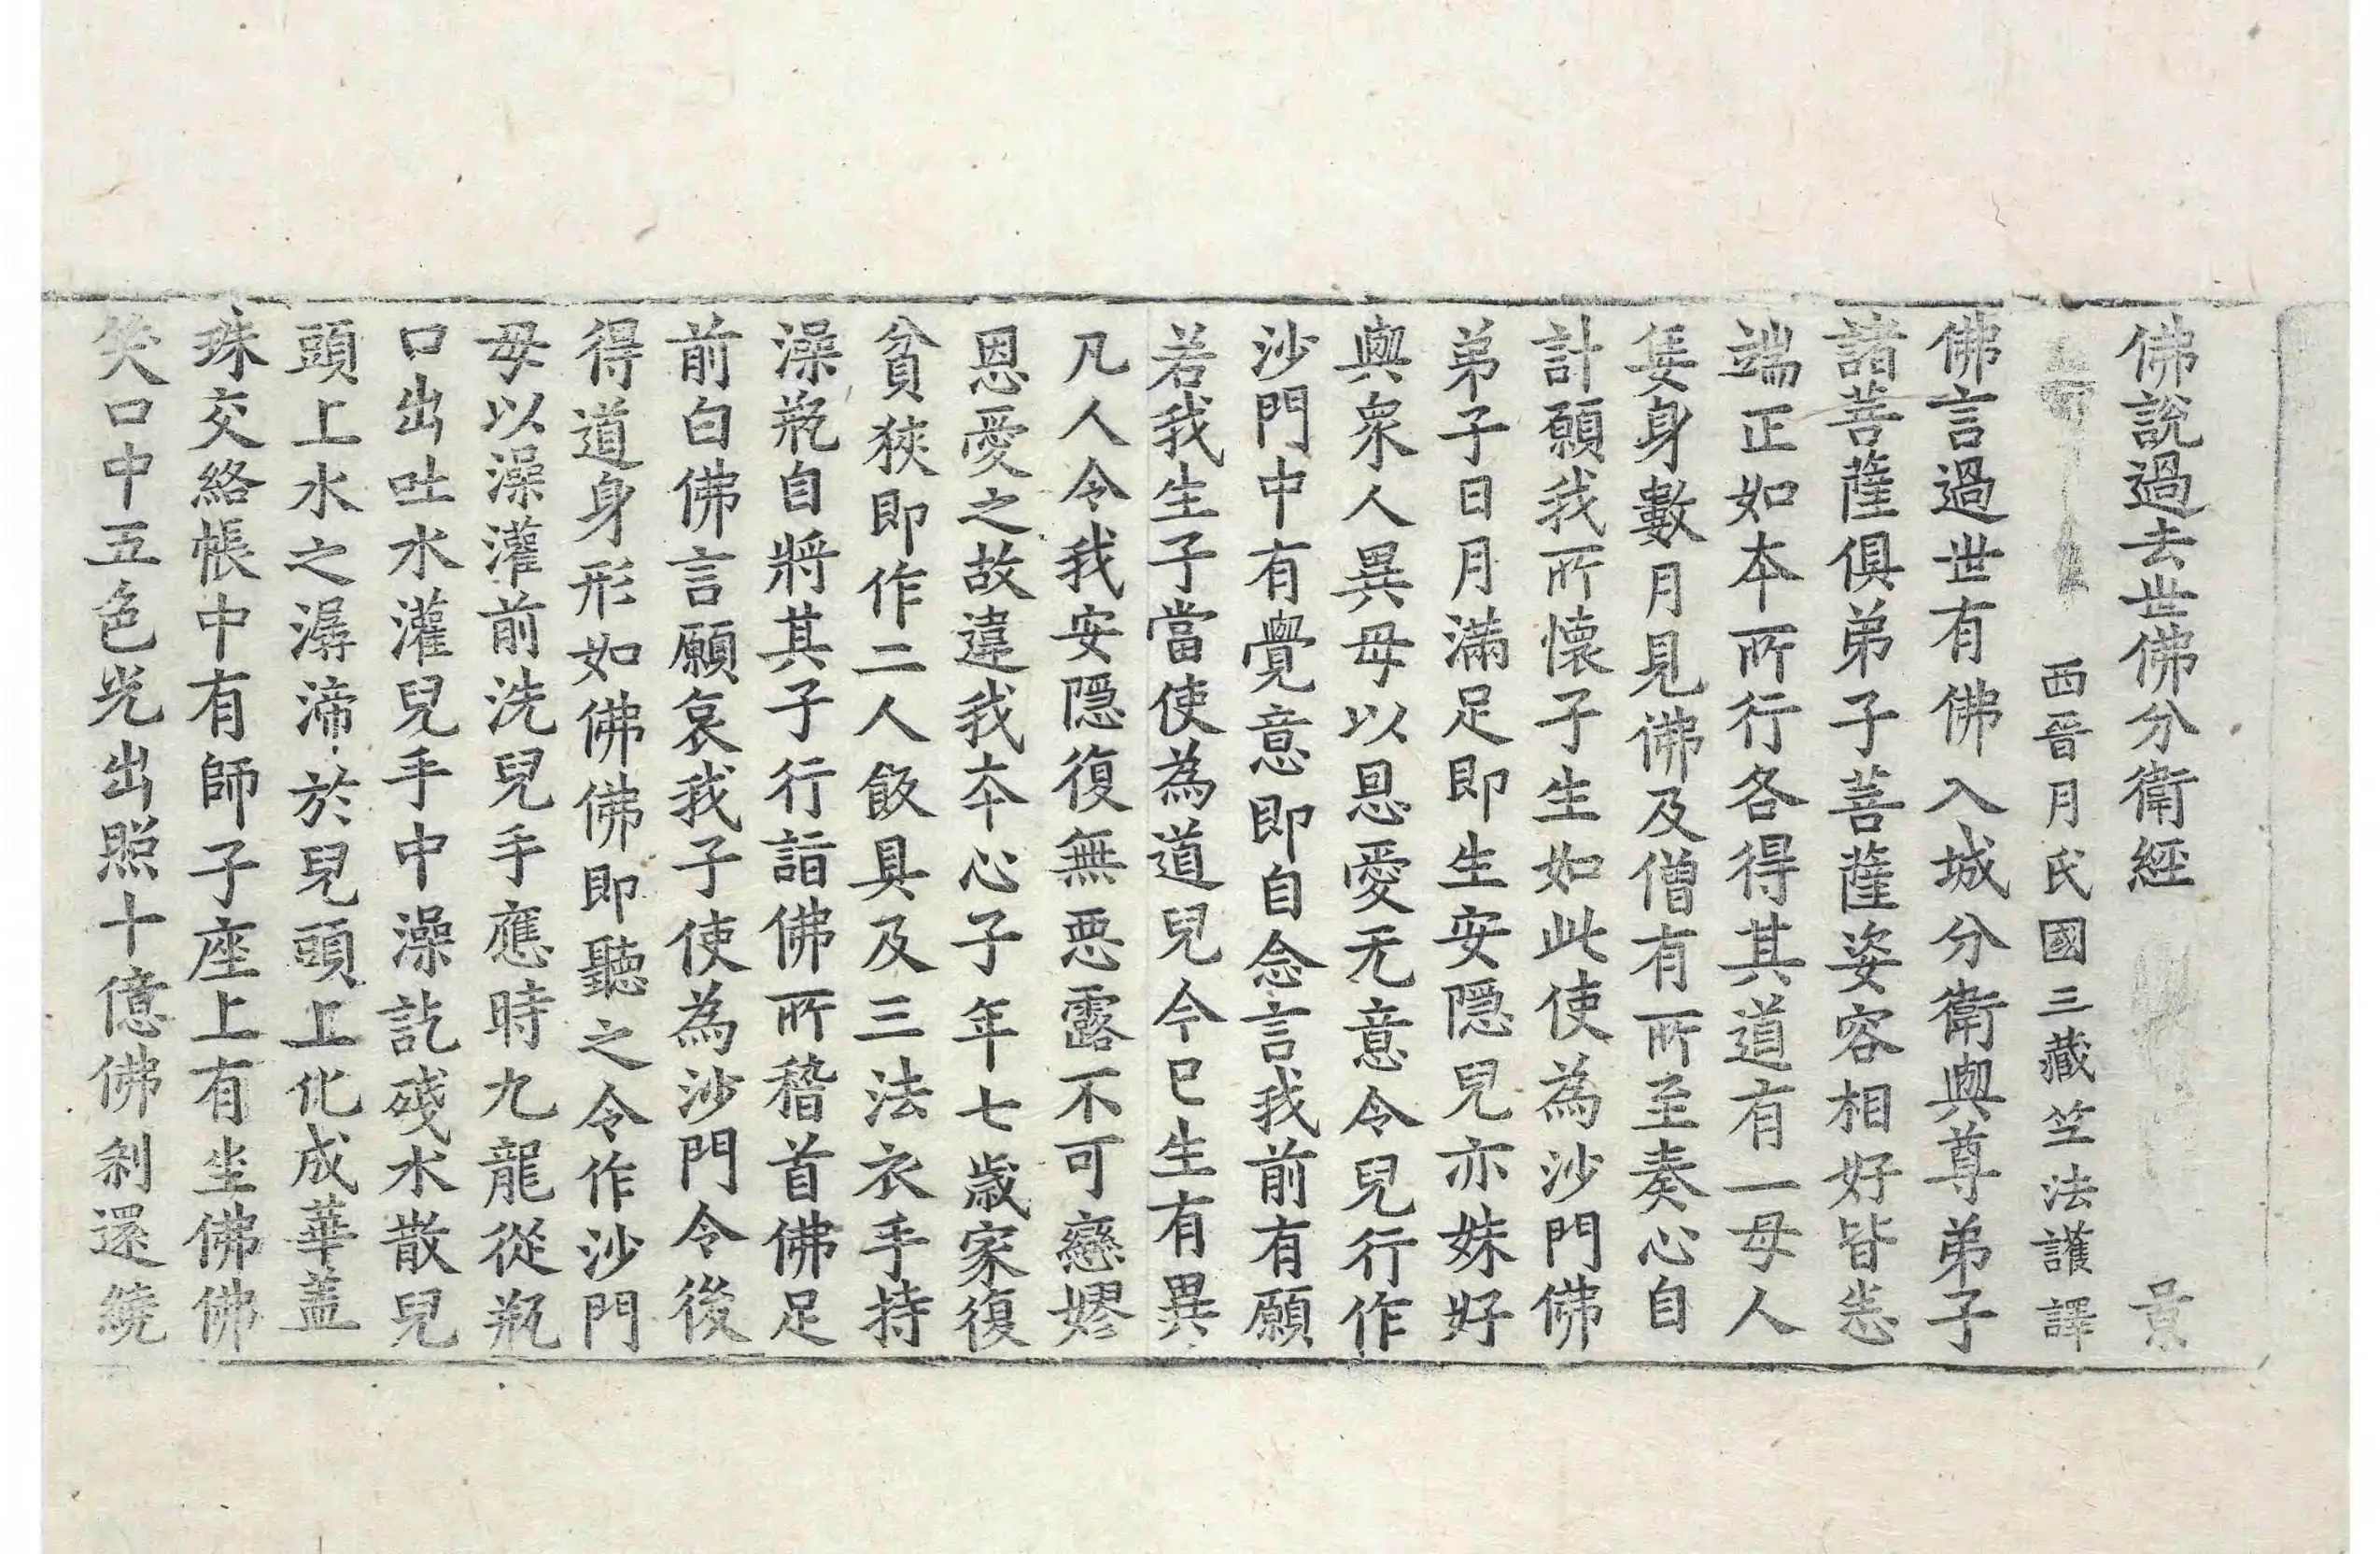 佛說過去世佛分衛經 景
西晉月氏國三藏竺法護譯
佛言過世有佛入城分衛與尊弟子
諸菩薩俱弟子菩薩姿容相好皆悉
端正如本所行各得其道有一母人
妊身數月見佛及僧有所至奏心自
計願我所懷子生如此使為沙門佛
弟子日月滿足即生安隱兒亦姝好
與衆人異母以恩愛无意令兒行作
沙門中有覺意即自念言我前有願
若我生子當使為道兒今已生有異
凡人令我安隱復無惡露不可戀嫪
恩愛之故違我本心子年七歲家復
貧狹即作二人飯具及三法衣手持
澡瓶自將其子行詣佛所稽首佛足
前白佛言願哀我子使為沙門令後
得道身形如佛佛即聽之令作沙門
母以澡灌前洗兒手應時九龍從瓶
口出吐水灌兒手中澡訖殘水散兒
頭上水之潺渧於兒頭上化成華蓋
珠交絡帳中有師子座上有坐佛佛
笑口中五色光出照十億佛刹還繞